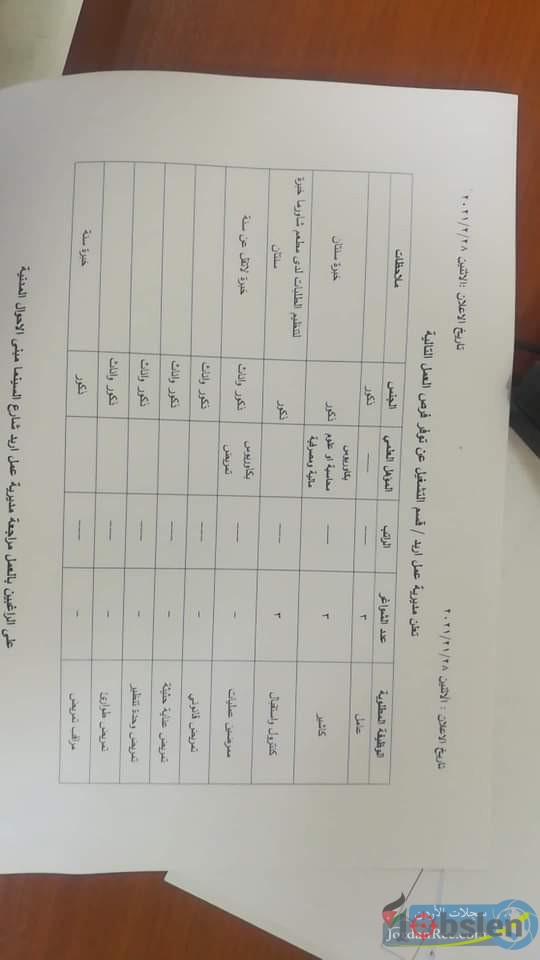 تاريخ الاعلان :الاثنين ٢٠٢١/٢/٢٨
تاريخ الاعلان : الاثنين ٢٠٢١/٢١/٢٨
تعلن مديرية عمل اربد / قسم التشغيل عن توفر فرص العمل التالية
الوظيفة المطلوبة عدد الشواغر الراتب المؤهل العلمي الجنس ملاحظات
عامل ٣ ---- ---- ذكور
كاشير ٣ ---- بكالوريوس محاسبة او علوم مالية ومصرفية ذكور خبرة سنتان
كنترول واستقبال ٣ ---- ذكور لتنظيم الطلبات لدى مطعم شاورما خبرة سنتان
ممرضين عمليات - ---- بكالوريوس تمريض ذكور واناث خبرة لاتقل عن سنة
تمريض قانوني - ---- ذكور واناث
تمريض عناية حثيثة - ---- ذكور واناث
تمريض وحدة تنظير - ---- ذكور واناث
تمريض طوارئ - ---- ذكور واناث
مراقب تمريض - ---- ذكور خبرة سنة
على الراغبين بالعمل مراجعة مديرية عمل اربد شارع السينما مبنى الاحوال المدنية
سجلات الأردن
JordanRec.com
Jobslen